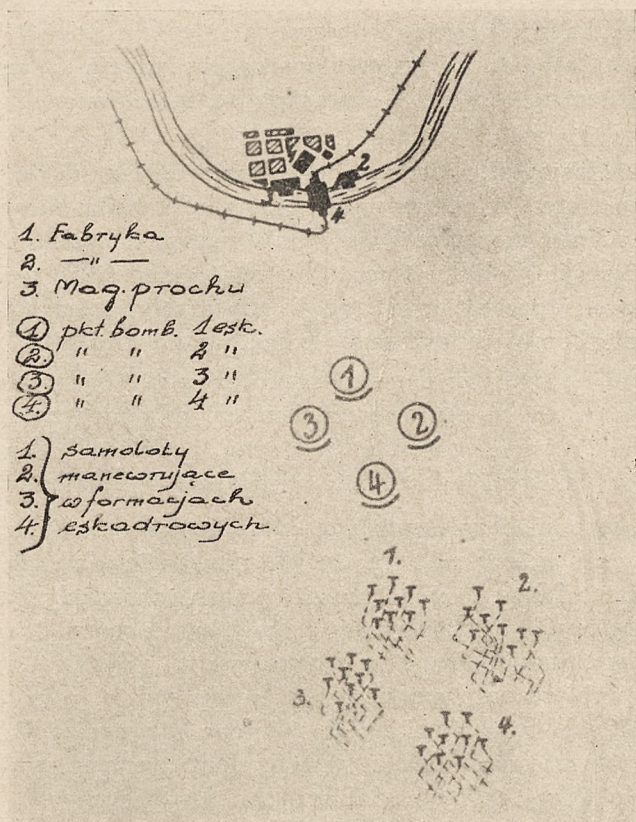 2
4
1. Fabryka
2. —"—
3. Mag. prochu
① pkt. bomb. 1 esk.
② " " 2 "
③ " " 3 "
④ " " 4 "
1. samoloty
2. manewrujące
3. w formacjach
4. eskadrowych
①
③ ②
④
1.
2.
3.
4.